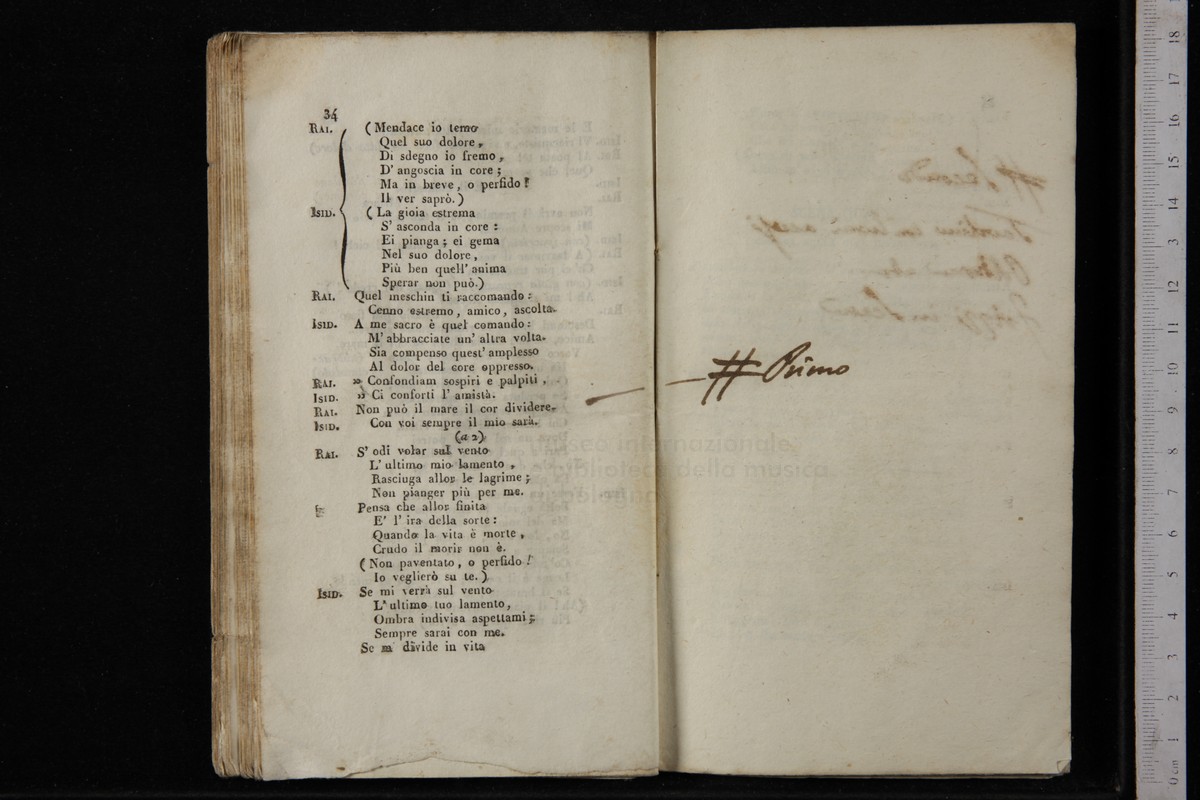 34
RAI. ( Mendace io temo
Quel suo dolore,
Di sdegno io fremo,
D' angoscia in core ;
Ma in breve, o perfido !
Il ver saprò. )
ISID. ( La gioia estrema
S' asconda in core :
Ei pianga ; ei gema
Nel suo dolore,
Più ben quell' anima
Sperar non può.)
RAI. Quel meschin ti raccomando :
Cenno estremo, amico, ascolta.
ISID. A me sacro è quel comando :
M' abbracciate un' altra volta.
Sia compenso quest' amplesso
Al dolor del core oppresso.
RAI. » Confondiam sospiri e palpiti ,
ISID. » Ci conforti l' amistà.
RAI. Non può il mare il cor dividere.
ISID. Con voi sempre il mio sarà.
(a 2)
RAI. S' odi volar sul vento
L' ultimo mio lamento ,
Rasciuga allor le lagrime ;
Non pianger più per me.
Pensa che allor finita
E' l' ira della sorte :
Quando la vita è morte ,
Crudo il morir non è.
( Non paventato , o perfido !
Io veglierò su te. )
ISID. Se mi verrà sul vento
L' ultimo tuo lamento,
Ombra indivisa aspettami ;
Sempre sarai con me.
Se m' divide in vita
# Primo
museo internazionale
e biblioteca della musica
di bologna